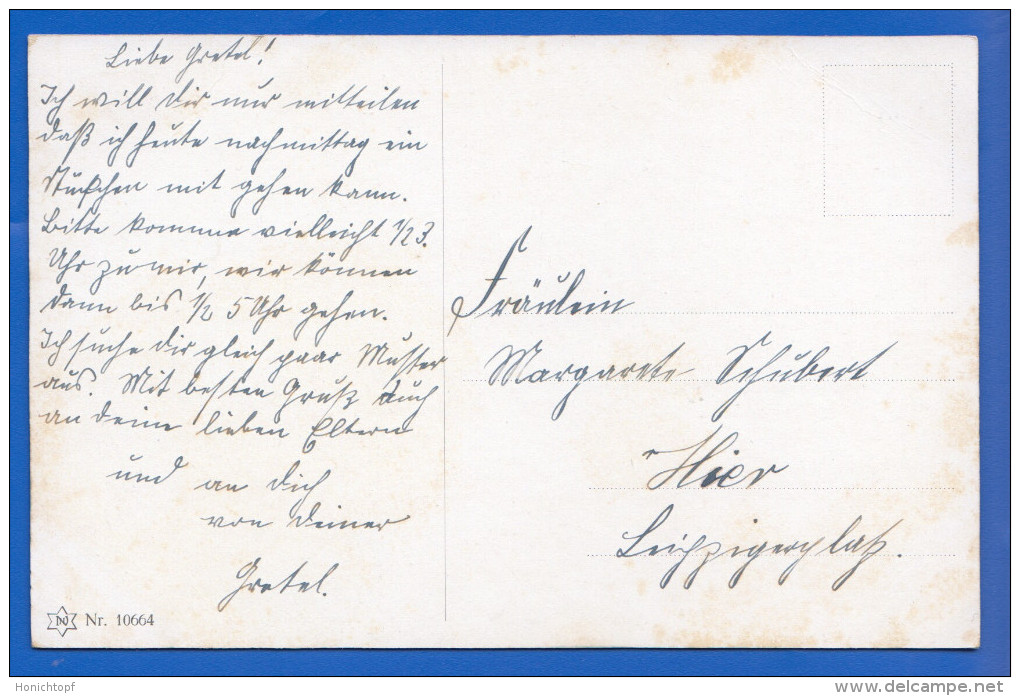 Liebe Gretel!
Ich will dir nur mitteilen
daß ich heute nachmittag ein
Stückchen mit gehen kann.
Bitte komme vielleicht 1/2 3.
Uhr zu mir, wir können
dann bis 1/2 5 Uhr gehen.
Ich suche dir gleich paar Muster
aus. Mit besten Gruß auch
an deine lieben Eltern
und an dich
von deiner
Gretel.
Nr. 10664
Fräulein
Margarete Schubert
Hier
Leipzigerplatz.
Honichtopf
delcampe.net